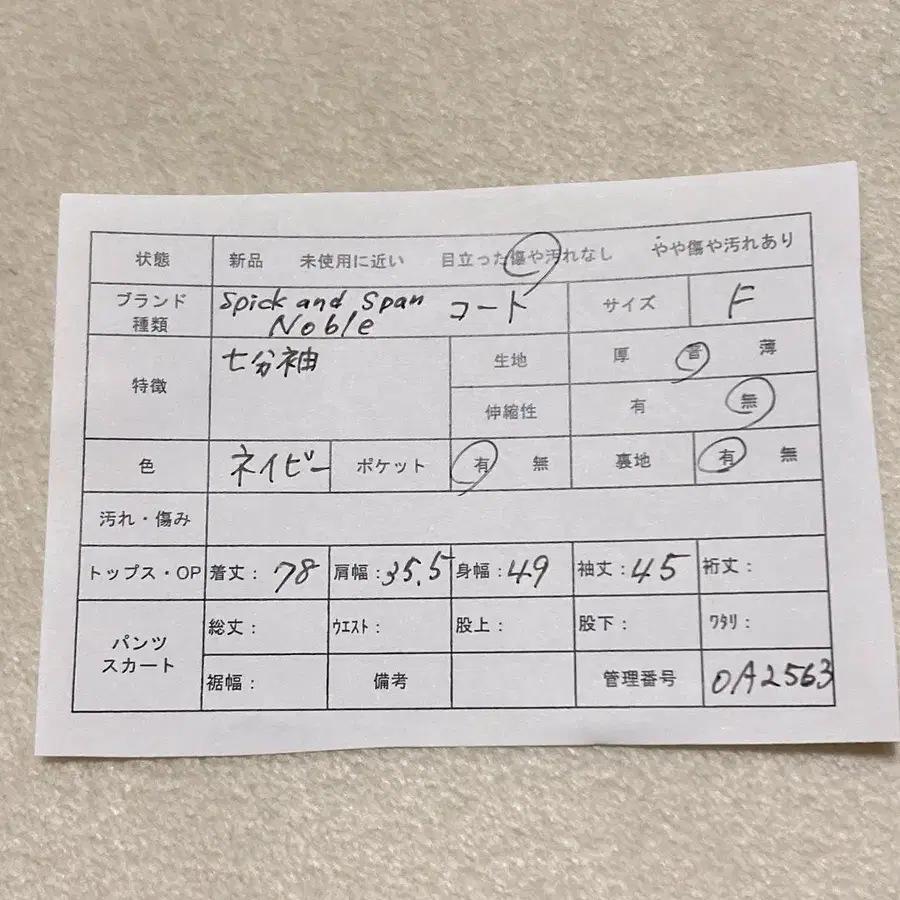 状態 新品 未使用に近い 目立った傷や汚れなし やや傷や汚れあり
ブランド 種類 Spick and Span Noble コート サイズ F
特徴 七分袖 生地 厚 普 薄
伸縮性 有 無
色 ネイビー ポケット 有 無 裏地 有 無
汚れ・傷み
トップス・OP 着丈: 78 肩幅: 35.5 身幅: 49 袖丈: 45 裄丈:
パンツ スカート 総丈: ウエスト: 股上: 股下: ワタリ:
裾幅: 備考 管理番号 0A2563